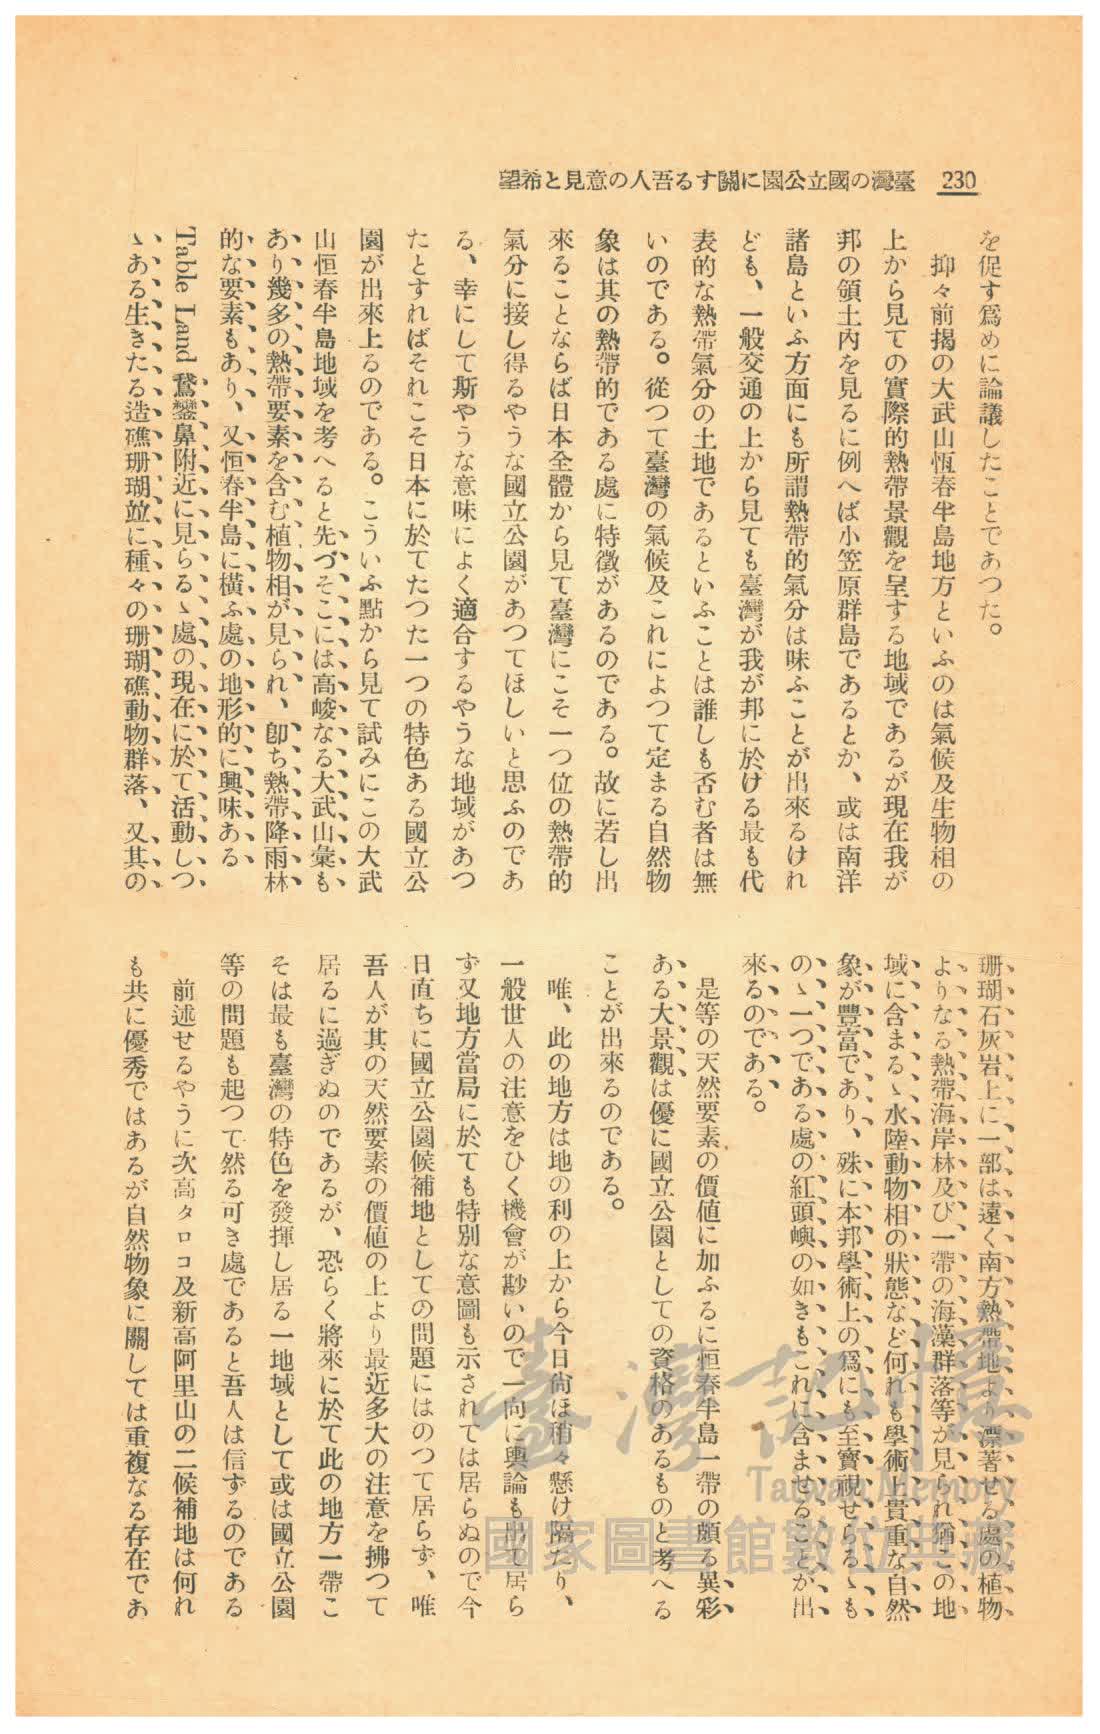 臺灣の國立公園に關する吾人の意見と希望 230
を促す爲めに論議したことであつた。
抑々前揭の大武山恆春半島地方といふのは氣候及生物相の
上から見ての實際的熱帶景觀を呈する地域であるが現在我が
邦の領土內を見るに例へば小笠原群島であるとか、或は南洋
諸島といふ方面にも所謂熱帶的氣分は味ふことが出來るけれ
ども、一般交通の上から見ても臺灣が我が邦に於ける最も代
表的な熱帶氣分の土地であるといふことは誰しも否む者は無
いのである。從つて臺灣の氣候及これによつて定まる自然物
象は其の熱帶的である處に特徵があるのである。故に若し出
來ることならば日本全體から見て臺灣にこそ一つ位の熱帶的
氣分に接し得るやうな國立公園があつてほしいと思ふのであ
る、幸にして斯やうな意味によく適合するやうな地域があつ
たとすればそれこそ日本に於てたつた一つの特色ある國立公
園が出來上るのである。こういふ點から見て試みにこの大武
山恒春半島地域を考へると先づそこには高峻なる大武山彙も
あり幾多の熱帶要素を含む植物相が見られ、卽ち熱帶降雨林
的な要素もあり、又恒春半島に橫ふ處の地形的に興味ある
Table Land 鵞鑾鼻附近に見らるゝ處の現在に於て活動しつ
ゝある生きたる造礁珊瑚竝に種々の珊瑚礁動物群落、又其の
珊瑚石灰岩上に一部は遠く南方熱帶地より漂著せる處の植物
よりなる熱帶海岸林及び一帶の海藻群落等が見られ猶この地
域に含まるゝ水陸動物相の狀態など何れも學術上貴重な自然
象が豐富であり、殊に本邦學術上の爲にも至寶視せらるゝも
のゝ一つである處の紅頭嶼の如きもこれに含ませることが出
來るのである。
是等の天然要素の價値に加ふるに恒春半島一帶の頗る異彩
ある大景觀は優に國立公園としての資格のあるものと考へる
ことが出來るのである。
唯、此の地方は地の利の上から今日尙ほ稍々懸け隔たり、
一般世人の注意をひく機會が尠いので一向に輿論も出て居ら
ず又地方當局に於ても特別な意圖も示されては居らぬので今
日直ちに國立公園候補地としての問題にはのつて居らず、唯
吾人が其の天然要素の價値の上より最近多大の注意を拂つて
居るに過ぎぬのであるが、恐らく將來に於て此の地方一帶こ
そは最も臺灣の特色を發揮し居る一地域として或は國立公園
等の問題も起つて然る可き處であると吾人は信ずるのである
前述せるやうに次高タロコ及新高阿里山の二候補地は何れ
も共に優秀ではあるが自然物象に關しては重複なる存在であ
臺灣記憶
Taiwan Memory
國家圖書館數位典藏